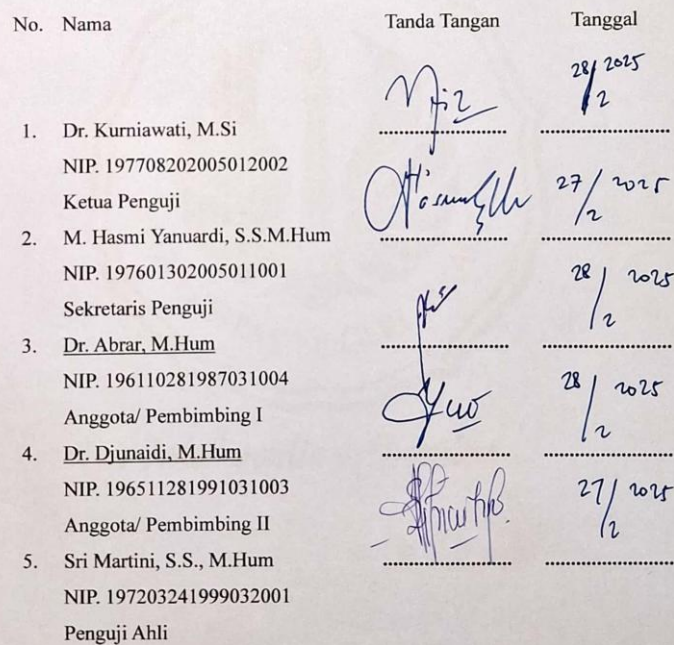 No. Nama Tanda Tangan Tanggal
28/2 2025
1. Dr. Kurniawati, M.Si
NIP. 197708202005012002
Ketua Penguji
27/2 2025
2. M. Hasmi Yanuardi, S.S.M.Hum
NIP. 197601302005011001
Sekretaris Penguji
28/2 2025
3. Dr. Abrar, M.Hum
NIP. 196110281987031004
Anggota/ Pembimbing I
28/2 2025
4. Dr. Djunaidi, M.Hum
NIP. 196511281991031003
Anggota/ Pembimbing II
27/2 2025
5. Sri Martini, S.S., M.Hum
NIP. 197203241999032001
Penguji Ahli